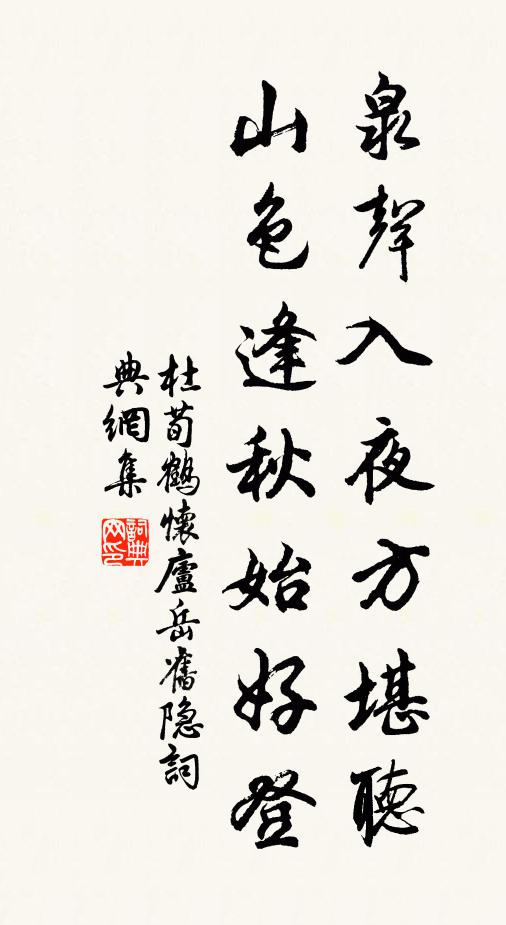 泉聲入夜方堪聽
山色逢秋始好登
杜荀鶴懷廬岳舊隐詞
典網集
詞典
网印